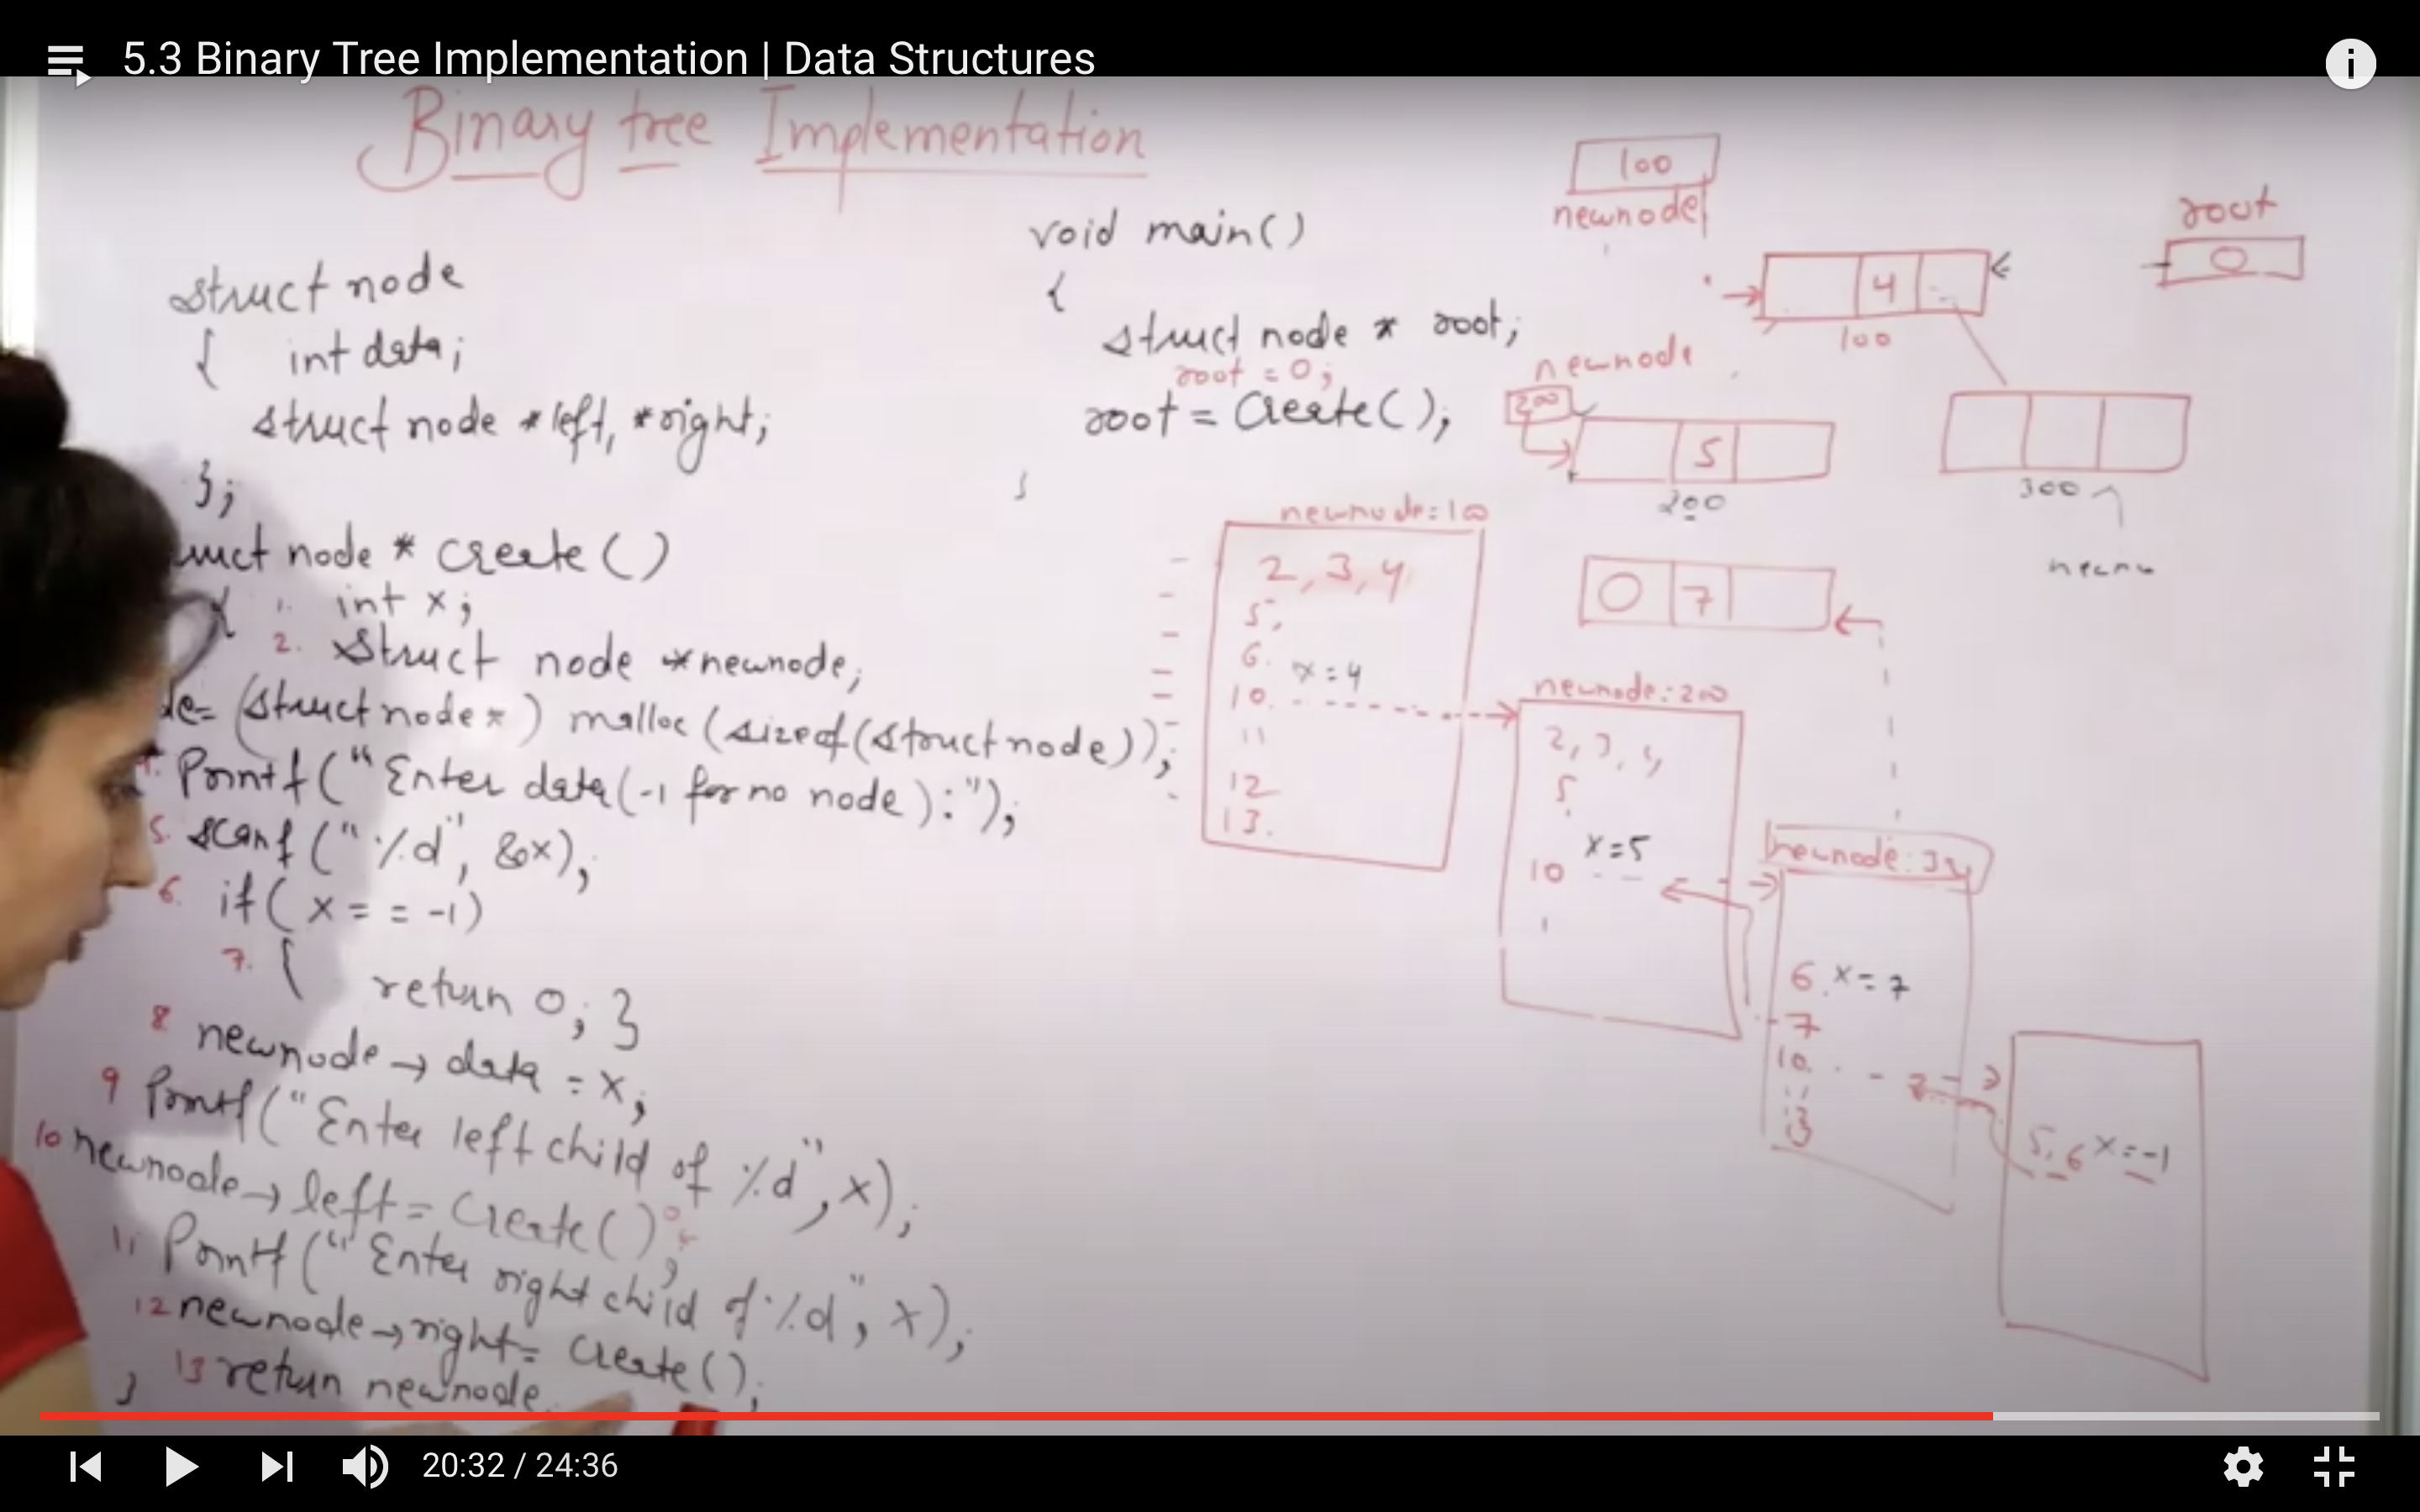 5.3 Binary Tree Implementation | Data Structures
Binary tree Implementation
struct node
{ int data;
struct node *left, *right;
};
uct node * create()
{ 1. int x;
2. struct node *newnode;
de= (struct node *) malloc (sizeof(struct node));
4. Printf("Enter data(-1 for no node):");
5. scanf("%d", &x);
6. if( x = = -1)
7. { return 0; }
8 newnode → data = x;
9 Printf("Enter left child of %d", x);
10 newnode → left = create();
11 Printf("Enter right child of %d", x);
12 newnode → right = create();
13 return newnode
}
void main()
{
struct node * root;
root = 0;
root = create();
}
100
newnode
root
0
4
100
newnode
200
5
200
300
0 7
newnode:100
2, 3, 4
5,
6. x=4
10.
11
12
13.
newnode:200
2, 3, 4
5.
x=5
10
6. x=7
7
10.
11
13
5, 6 x=-1
20:32 / 24:36